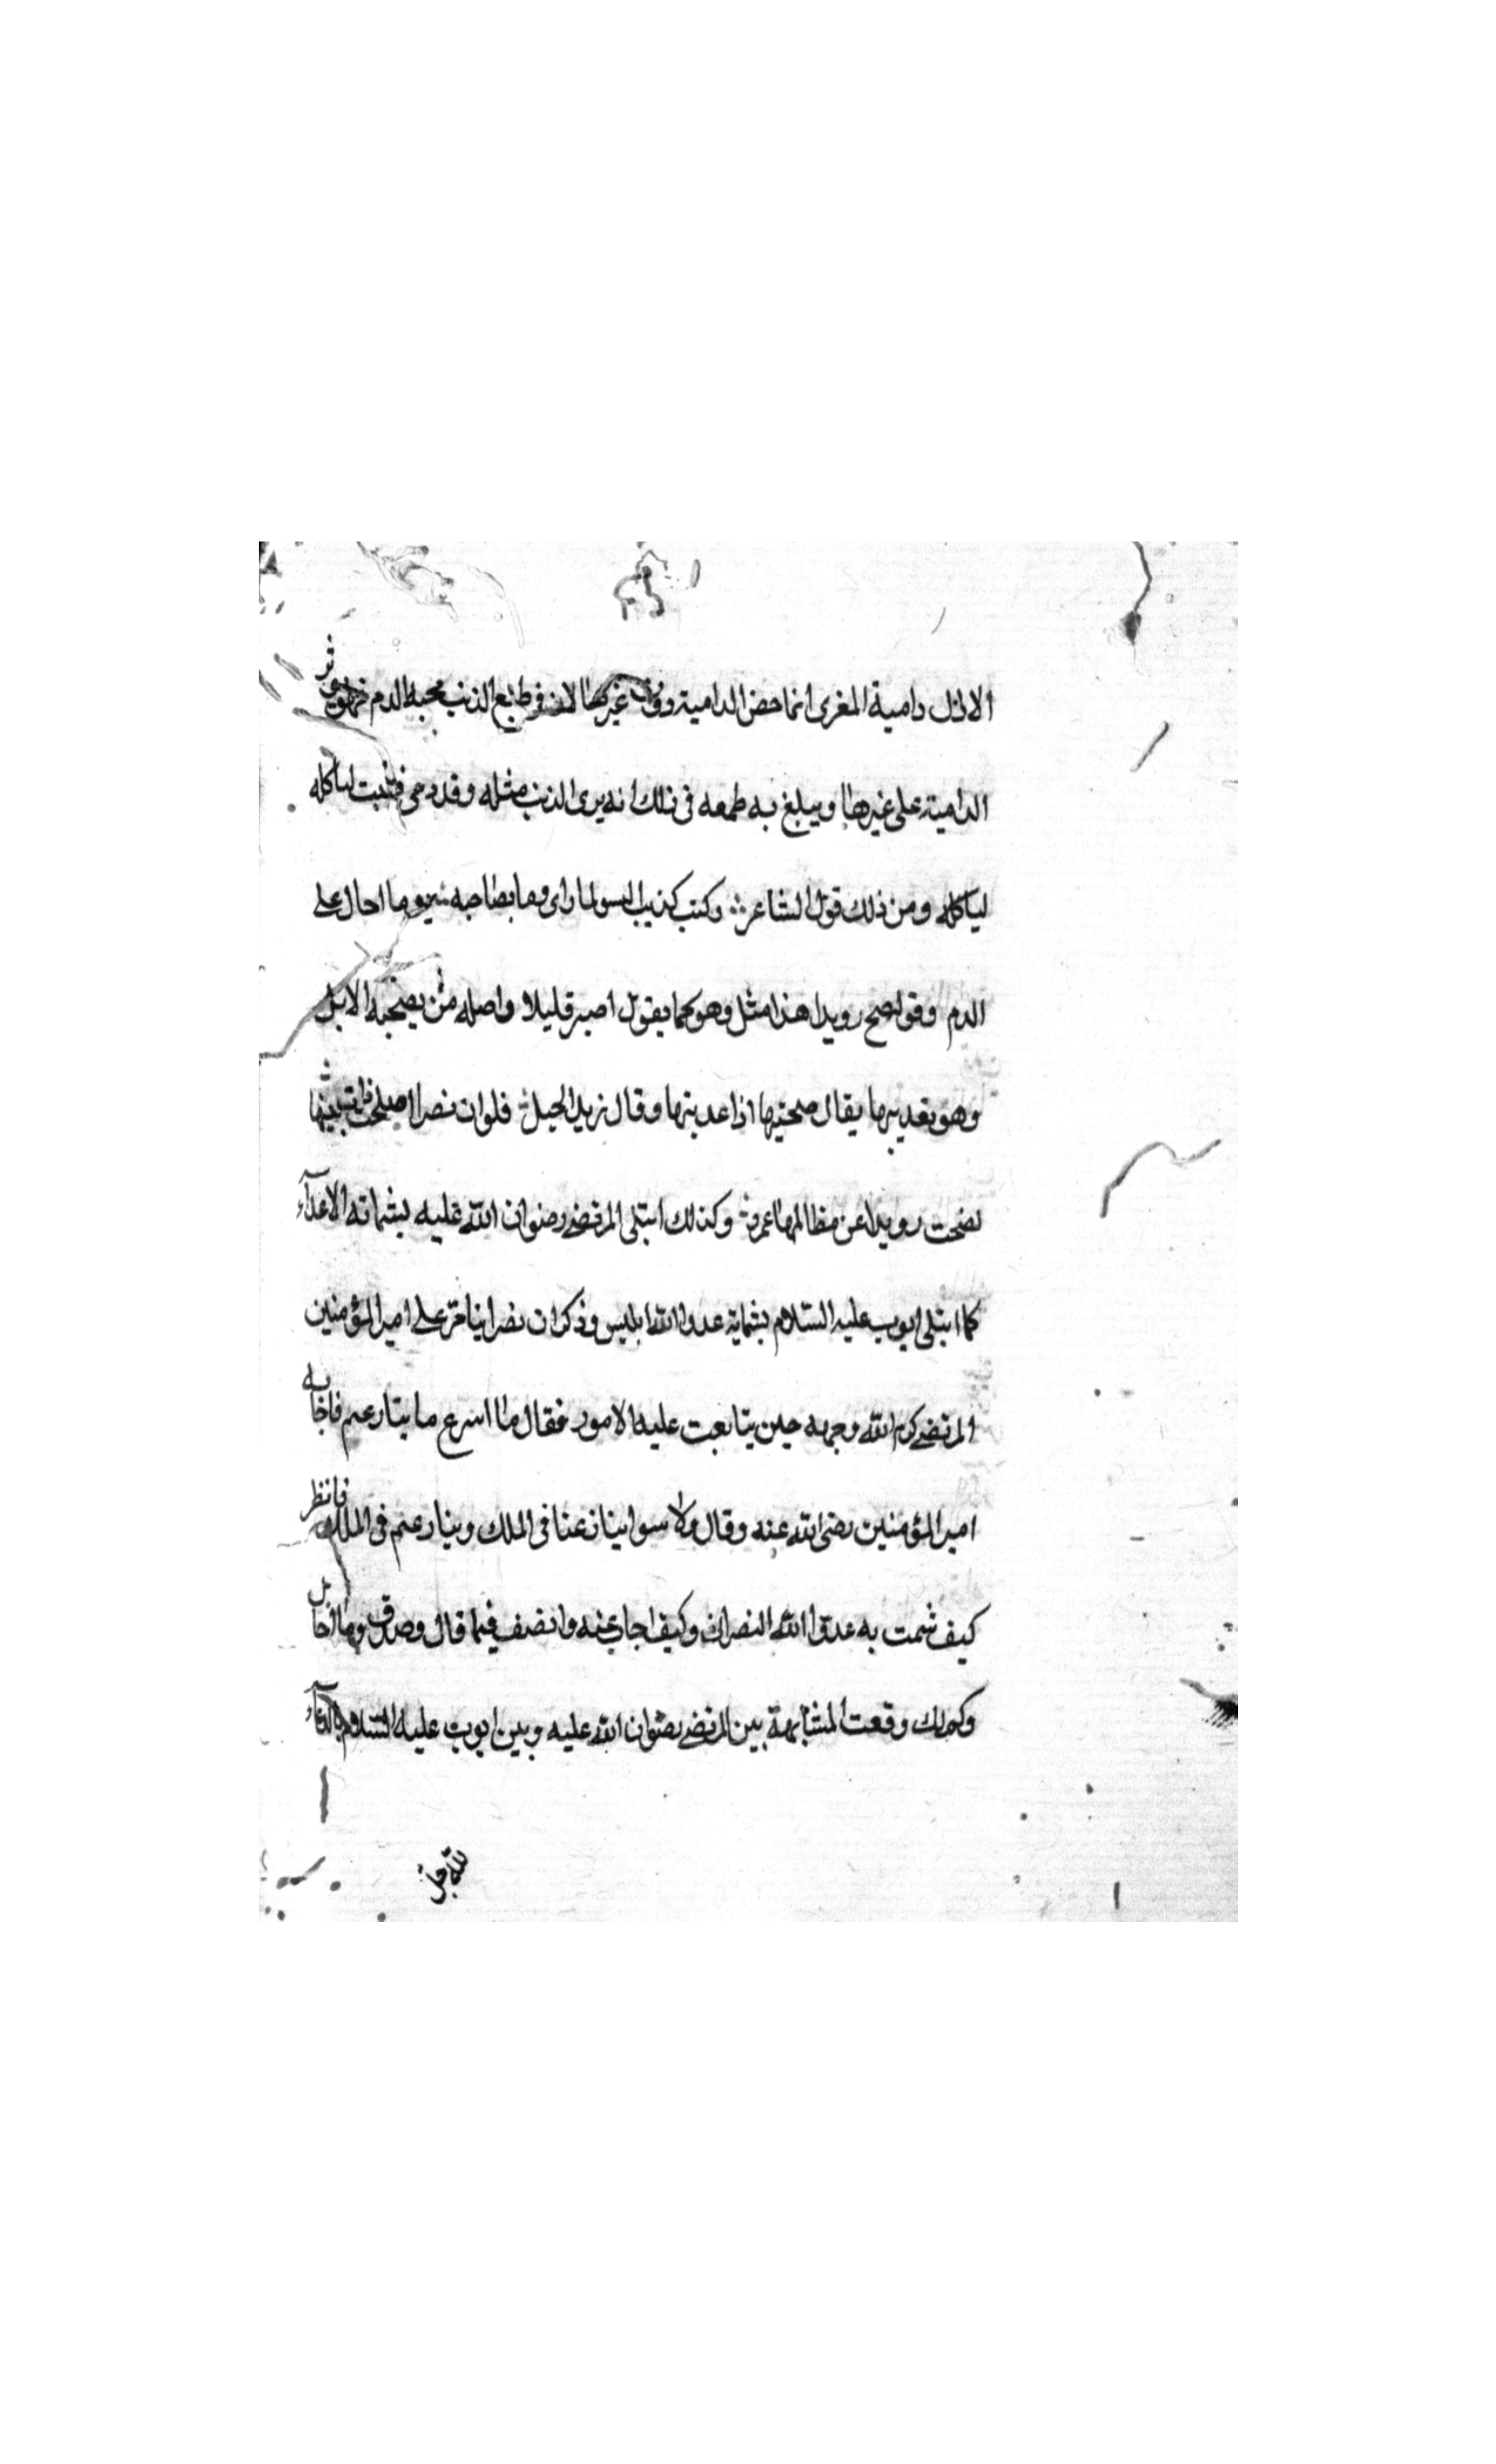 الازل دامية المغرى انما خص الدامية دون غيرها لان فى طبع الذئب محبه الدم فهو يوثر
الدامية على غيرها ويبلغ به طمعه فى ذلك انه يرى الذئب مثله وقد دمى فيثبت لياكله
لياكله ومن ذلك قول الشاعر وكنت كذيب السو لما راى دما بصاحبه يوما احال على
الدم وقوله ضح رويدا هذا مثل وهو كما يقول اصبر قليلا واصله من يضحيه الابل
وهو تغديتها يقال ضحيتها اذا غديتها وقال زيد الخيل فلو ان نصرا اصلحت ذات بينها
لضحت رويدا عن مظالمها عمرو وكذلك ابتلى المرتضى رضوان الله عليه بشماتة الاعدآء
كما ابتلى ايوب عليه السلام بشماتة عدو الله ابليس وذكر ان نصرانيا مر على امير المؤمنين
المرتضى كرم الله وجهه حين يتابعت عليه الامور فقال ما اسرع ما يتنازعتم فاجابه
امير المؤمنين رضى الله عنه وقال ولا سوا ينازعنا فى الملك وينازعتم فى الملك فانظر
كيف شمت به عدو الله النصرانى وكيف اجاب عنه وانصف فيما قال وصدق وما
وكذلك وقعت المشابهة بين المرتضى رضوان الله عليه وبين ايوب عليه السلام بالدعآء
لله جل